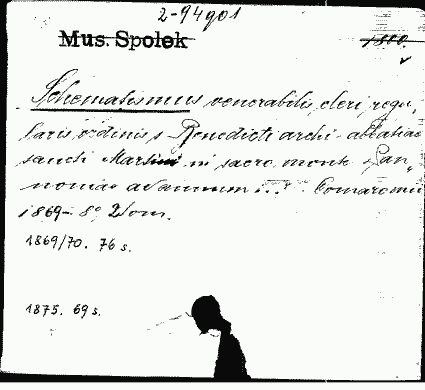 2-94901
Mus. Spolek
1880.
Schematismus venerabilis cleri regu-
laris ordinis s Benedicti archi-abbatiae
sancti Martini in sacro monte Pan-
noniae ad annum ... Comaromii
1869- 8° 2 Vom.
1869/70. 76 s.
1875. 69 s.